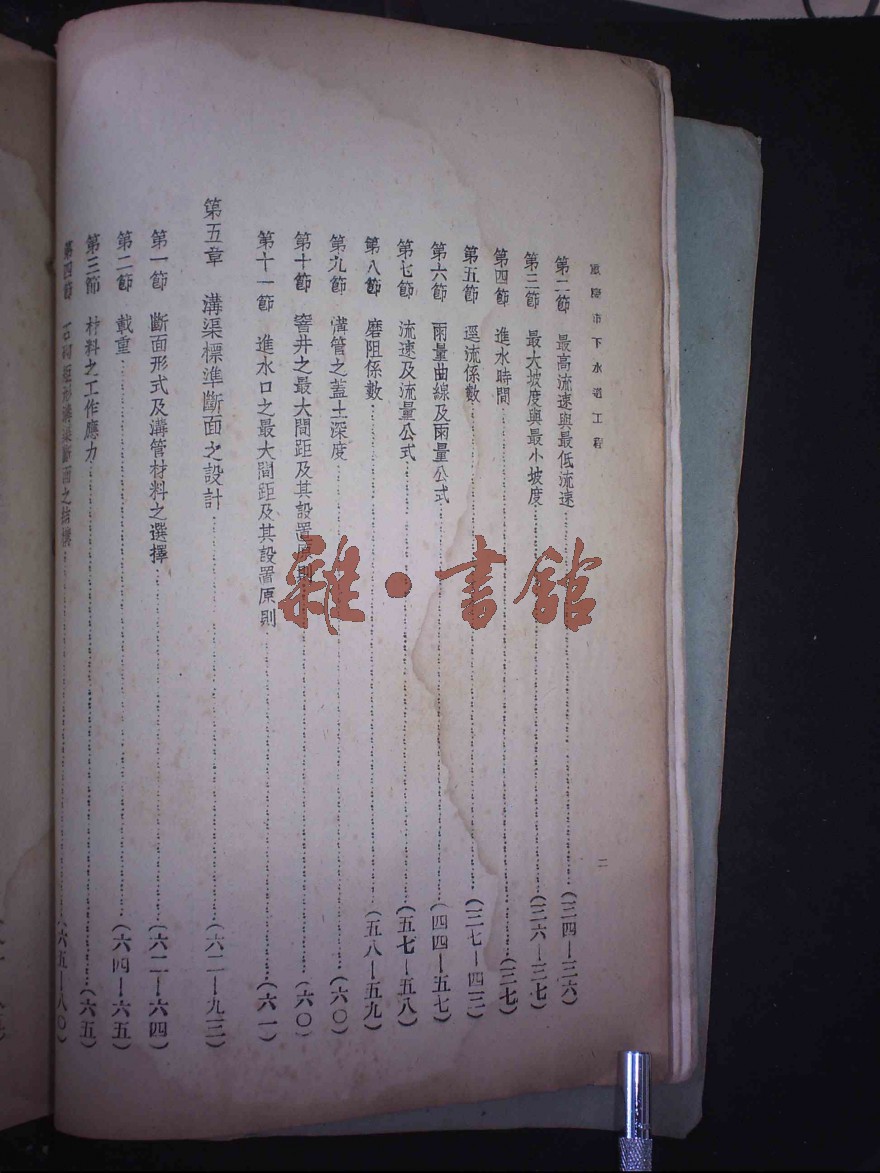 重慶市下水道工程
二
第二節 最高流速與最低流速(三四—三六)
第三節 最大坡度與最小坡度(三六—三七)
第四節 進水時間(三七)
第五節 逕流係數(三七—四三)
第六節 雨量曲線及雨量公式(四四—五七)
第七節 流速及流量公式(五七—五八)
第八節 磨阻係數(五八—五九)
第九節 溝管之蓋土深度(六〇)
第十節 窨井之最大間距及其設置原則(六〇)
第十一節 進水口之最大間距及其設置原則(六一)
第五章 溝渠標準斷面之設計(六二—九三)
第一節 斷面形式及溝管材料之選擇(六二—六四)
第二節 載重(六四—六五)
第三節 材料之工作應力(六五)
第四節 石砌 溝渠斷面之結構(六五—八〇)
雜·書館